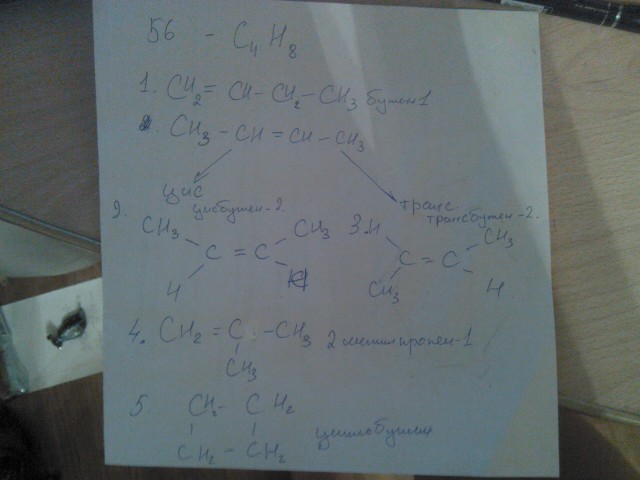 56 - C₄H₈
1. CH₂ = CH - CH₂ - CH₃ бутен 1
2. CH₃ - CH = CH - CH₃
цис транс
2. цисбутен-2 трансбутен-2.
CH₃ CH₃ 3. H CH₃
C = C C = C
H H CH₃ H
4. CH₂ = C - CH₃ 2 метилпропен-1
CH₃
5 CH₂ - CH₂
CH₂ - CH₂ циклобутан